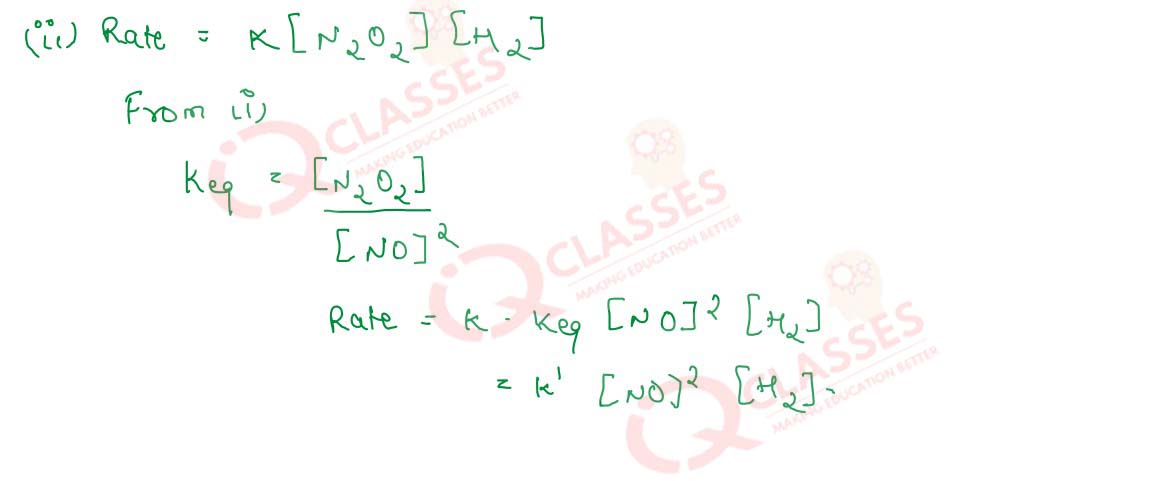 (ii) Rate = K[N₂O₂][H₂]
From (i)
Keq = [N₂O₂]
[NO]²
Rate = K · Keq [NO]² [H₂]
= K' [NO]² [H₂].
iQ CLASSES
MAKING EDUCATION BETTER
iQ CLASSES
MAKING EDUCATION BETTER
iQ CLASSES
MAKING EDUCATION BETTER